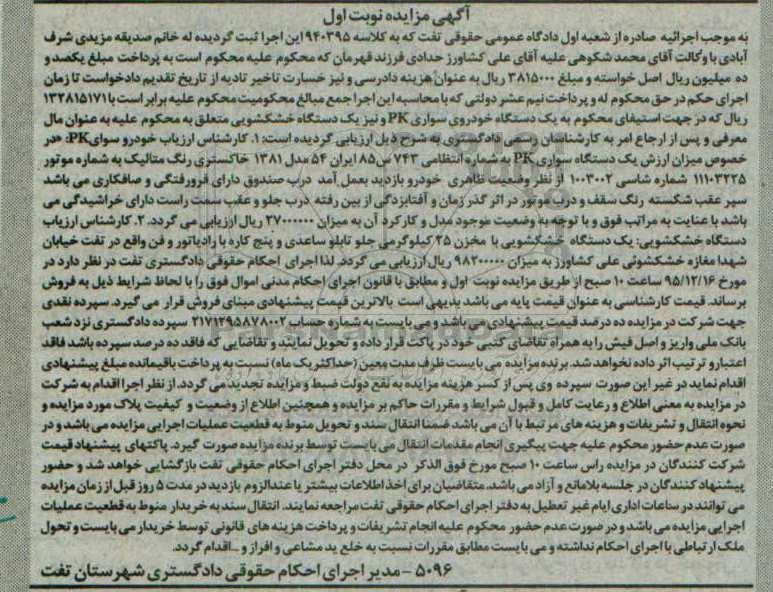 آگهی مزایده نوبت اول
به موجب اجرائیه صادره از شعبه اول دادگاه عمومی حقوقی تفت که به کلاسه ۹۴۰۳۹۵ این اجرا ثبت گردیده له خانم صدیقه مزیدی شرف
آبادی با وکالت آقای محمد شکوهی علیه آقای علی کشاورز حدادی فرزند قهرمان که محکوم علیه محکوم است به پرداخت مبلغ یکصد و
ده میلیون ریال اصل خواسته و مبلغ ۳۸۱۵۰۰۰ ریال به عنوان هزینه دادرسی و نیز خسارت تاخیر تادیه از تاریخ تقدیم دادخواست تا زمان
اجرای حکم در حق محکوم له و پرداخت نیم عشر دولتی که با محاسبه این اجرا جمع مبالغ محکومیت محکوم علیه برابر است با ۱۳۲۸۱۵۱۷۱
ریال که در جهت استیفای محکوم به یک دستگاه خودروی سواری PK و نیز یک دستگاه خشکشویی متعلق به محکوم علیه به عنوان مال
معرفی و پس از ارجاع امر به کارشناسان رسمی دادگستری به شرح ذیل ارزیابی گردیده است: ۱. کارشناس ارزیاب خودرو سوای PK: «در
خصوص میزان ارزش یک دستگاه سواری PK به شماره انتظامی ۷۴۳ س ۸۵ ایران ۵۴ مدل ۱۳۸۱ خاکستری رنگ متالیک به شماره موتور
۱۱۱۰۳۲۲۵ شماره شاسی ۱۰۰۳۰۰۲ از نظر وضعیت ظاهری خودرو بازدید بعمل آمد درب صندوق دارای فرورفتگی و صافکاری می باشد
سپر عقب شکسته رنگ سقف و درب موتور در اثر گذر زمان و آفتابزدگی از بین رفته درب جلو و عقب سمت راست دارای خراشیدگی می
باشد با عنایت به مراتب فوق و با توجه به وضعیت موجود مدل و کارکرد آن به میزان ۲۷۰۰۰۰۰۰ ریال ارزیابی می گردد. ۲. کارشناس ارزیاب
دستگاه خشکشویی: یک دستگاه خشکشویی با مخزن ۲۵ کیلوگرمی جلو تابلو ساعدی و پنج کاره با رادیاتور و فن واقع در تفت خیابان
شهدا مغازه خشکشوئی علی کشاورز به میزان ۹۸۲۰۰۰۰۰ ریال ارزیابی می گردد. لذا اجرای احکام حقوقی دادگستری تفت در نظر دارد در
مورخ ۹۵/۱۲/۱۶ ساعت ۱۰ صبح از طریق مزایده نوبت اول و مطابق با قانون اجرای احکام مدنی اموال فوق را با لحاظ شرایط ذیل به فروش
برساند. قیمت کارشناسی به عنوان قیمت پایه می باشد بدیهی است بالاترین قیمت پیشنهادی مبنای فروش قرار می گیرد. سپرده نقدی
جهت شرکت در مزایده ده درصد قیمت پیشنهادی می باشد و می بایست به شماره حساب ۲۱۷۱۲۹۵۸۷۸۰۰۲ سپرده دادگستری نزد شعب
بانک ملی واریز و اصل فیش را به همراه تقاضای کتبی خود در پاکت قرار داده و تحویل نمایند و تقاضایی که فاقد ده درصد سپرده باشد فاقد
اعتبار و ترتیب اثر داده نخواهد شد. برنده مزایده می بایست ظرف مدت معین (حداکثر یک ماه) نسبت به پرداخت باقیمانده مبلغ پیشنهادی
اقدام نماید در غیر این صورت سپرده وی پس از کسر هزینه مزایده به نفع دولت ضبط و مزایده تجدید می گردد. از نظر اجرا اقدام به شرکت
در مزایده به معنی اطلاع و رعایت کامل و قبول شرایط و مقررات حاکم بر مزایده و همچنین اطلاع از وضعیت و کیفیت پلاک مورد مزایده و
نحوه انتقال و تشریفات و هزینه های مرتبط با آن می باشد ضمنا انتقال سند و تحویل منوط به قطعیت عملیات اجرایی مزایده می باشد و در
صورت عدم حضور محکوم علیه جهت پیگیری انجام مقدمات انتقال می بایست توسط برنده مزایده صورت گیرد. پاکتهای پیشنهاد قیمت
شرکت کنندگان در مزایده راس ساعت ۱۰ صبح مورخ فوق الذکر در محل دفتر اجرای احکام حقوقی تفت بازگشایی خواهد شد و حضور
پیشنهاد کنندگان در جلسه بلامانع و آزاد می باشد. متقاضیان برای اخذ اطلاعات بیشتر یا عندالزوم بازدید در مدت ۵ روز قبل از زمان مزایده
می توانند در ساعات اداری ایام غیر تعطیل به دفتر اجرای احکام حقوقی تفت مراجعه نمایند. انتقال سند به خریدار منوط به قطعیت عملیات
اجرایی مزایده می باشد و در صورت عدم حضور محکوم علیه انجام تشریفات و پرداخت هزینه های قانونی توسط خریدار می بایست و تحول
ملک ارتباطی با اجرای احکام نداشته و می بایست مطابق مقررات نسبت به خلع ید مشاعی و افراز و ... اقدام گردد.
۵۰۹۶ - مدیر اجرای احکام حقوقی دادگستری شهرستان تفت